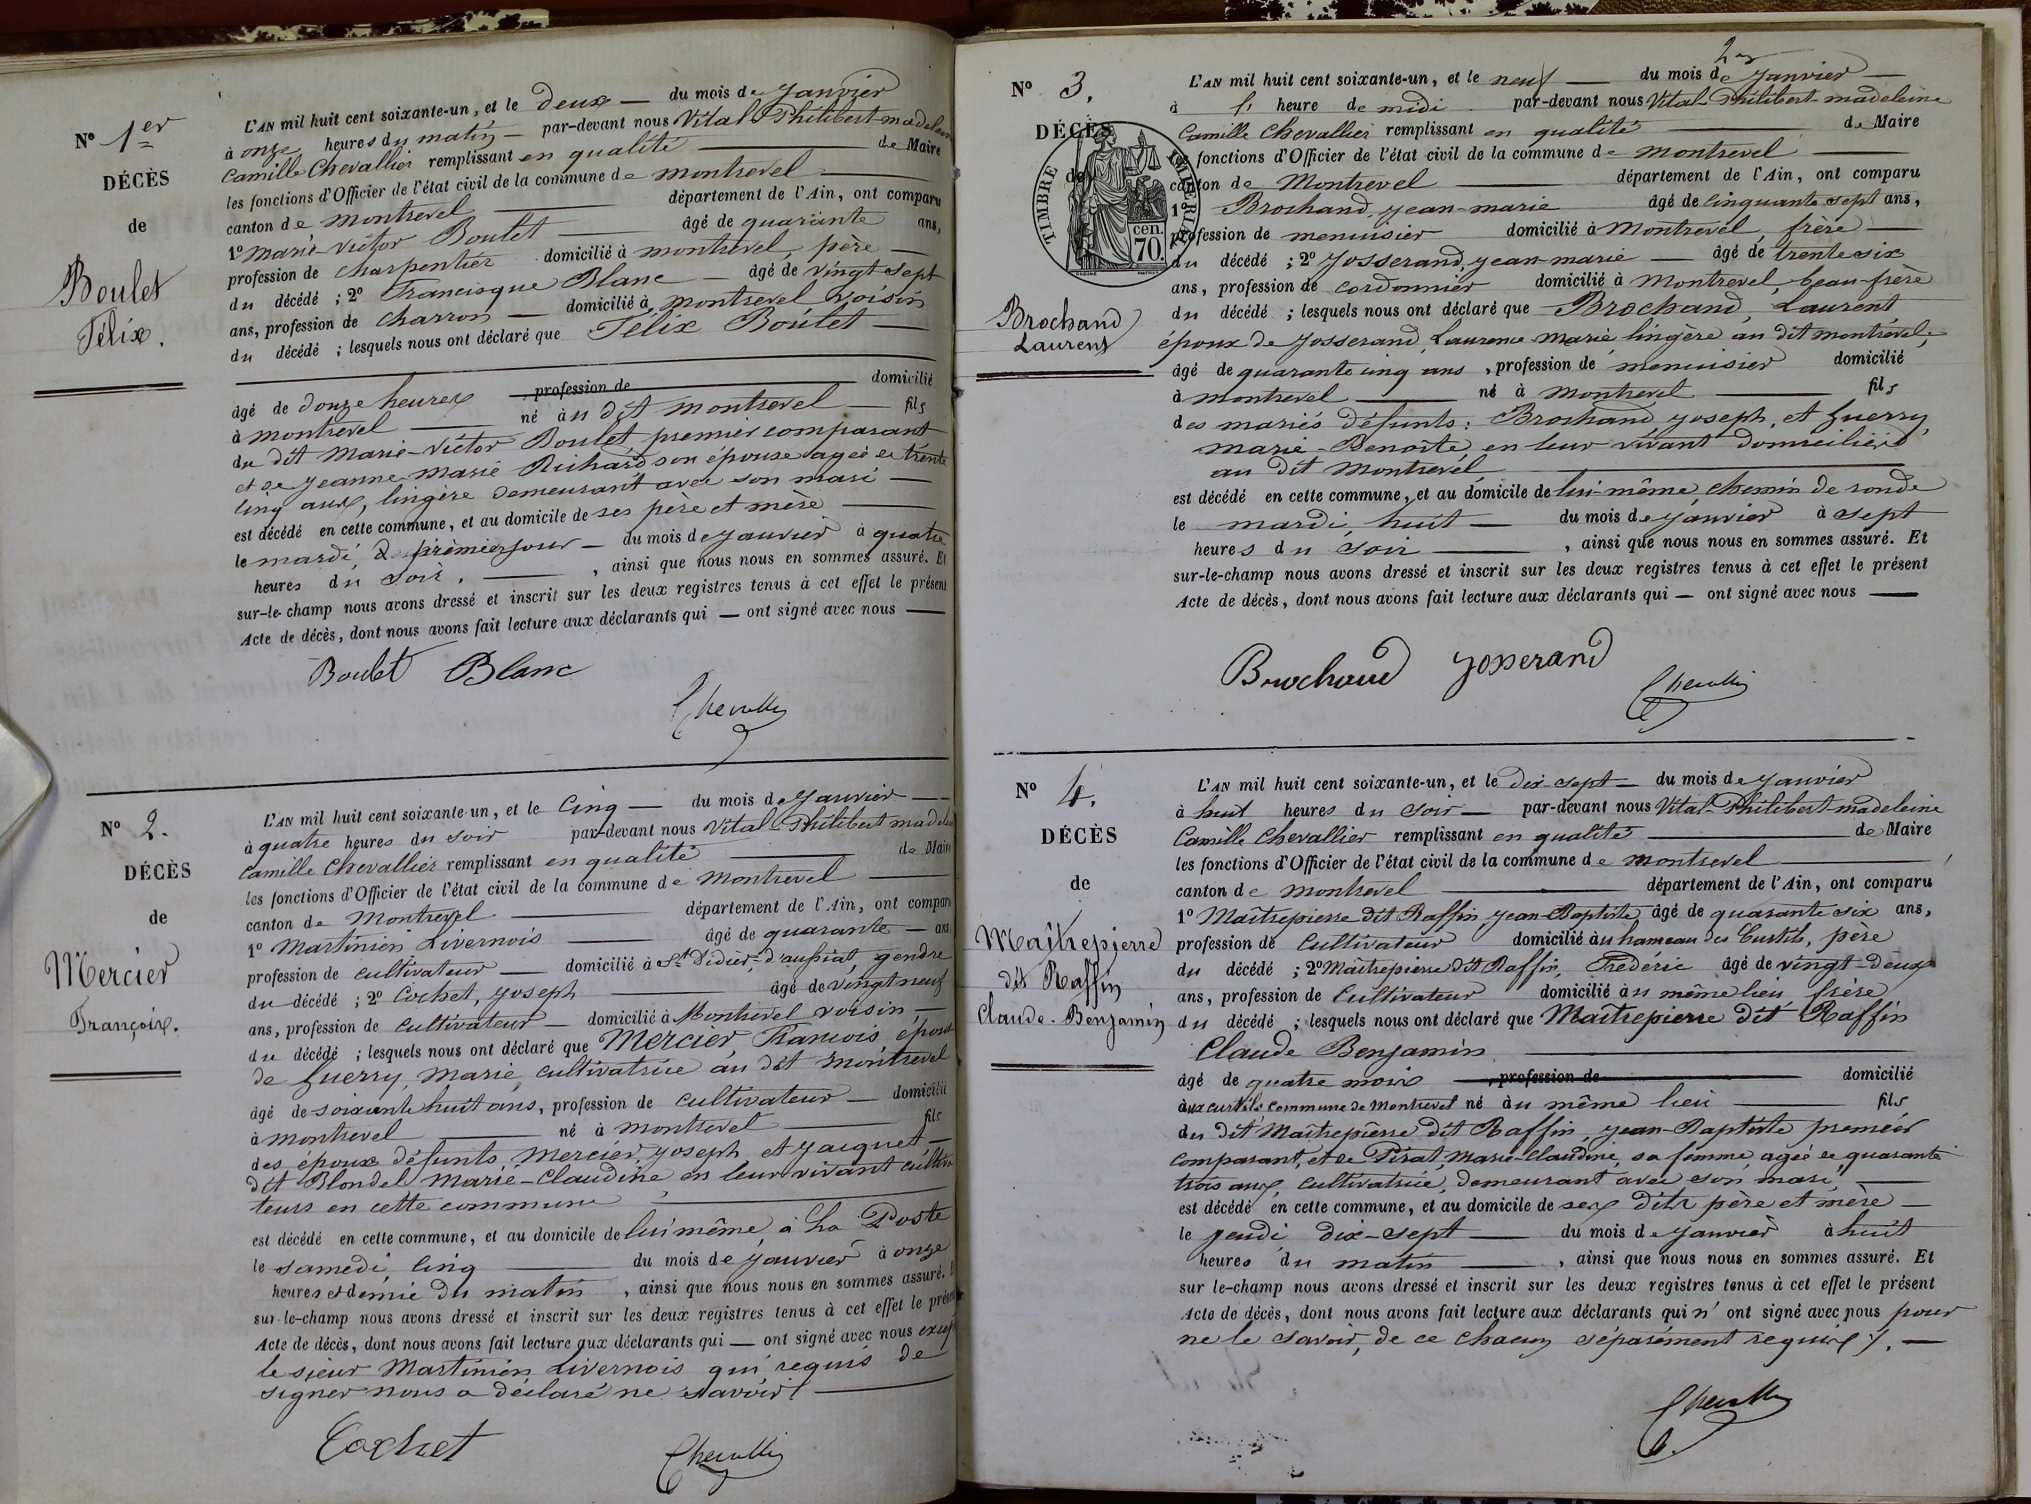 N° 1er
DÉCÈS
de
Boulet
Félix.
L'AN mil huit cent soixante-un, et le deux — du mois de Janvier
à onze heures du matin — par-devant nous Vital-Philibert-madeleine
Camille Chevallier remplissant en qualité — de Maire
les fonctions d'Officier de l'état civil de la commune de montrevel —
canton de montrevel — département de l'Ain, ont comparu
1° Marie-Victor Boulet — âgé de quarante ans,
profession de charpentier domicilié à montrevel, père —
du décédé ; 2° Francisque Blanc — âgé de vingt sept
ans, profession de charron — domicilié à montrevel voisin
du décédé ; lesquels nous ont déclaré que Félix Boulet —
âgé de douze heures , profession de domicilié
à montrevel — né au dit montrevel — fils
du dit Marie-Victor Boulet premier comparant
et de Jeanne-Marie Richard son épouse agée de trente
cinq ans, lingère demeurant avec son mari —
est décédé en cette commune, et au domicile de ses père et mère —
le mardi, premier jour — du mois de Janvier à quatre
heures du soir. — , ainsi que nous nous en sommes assuré. Et
sur-le-champ nous avons dressé et inscrit sur les deux registres tenus à cet effet le présent
Acte de décès, dont nous avons fait lecture aux déclarants qui — ont signé avec nous —
Boulet Blanc
Chevallier
N° 2.
DÉCÈS
de
Mercier
François.
L'AN mil huit cent soixante-un, et le Cinq — du mois de Janvier —
à quatre heures du soir par-devant nous Vital-Philibert madeleine
Camille Chevallier remplissant en qualité — de Maire
les fonctions d'Officier de l'état civil de la commune de montrevel —
canton de Montrevel — département de l'Ain, ont comparu
1° Martinien Livernois — âgé de quarante — ans
profession de cultivateur — domicilié à St Didier-d'aussiat, gendre
du décédé ; 2° Cochet, Joseph — âgé de vingt neuf
ans, profession de cultivateur — domicilié à Montrevel voisin —
du décédé ; lesquels nous ont déclaré que Mercier, François, époux
de Guerry, Marie, cultivatrice au dit montrevel
âgé de soixante huit ans, profession de cultivateur — domicilié
à montrevel — né à montrevel — fils
des époux défunts Mercier, Joseph et Jacquet —
dit Blondel Marie-Claudine en leur vivant cultiva
teurs en cette commune —
est décédé en cette commune, et au domicile de lui même, à La Poste
le samedi cinq — du mois de Janvier à onze
heures et demie du matin , ainsi que nous nous en sommes assuré. Et
sur-le-champ nous avons dressé et inscrit sur les deux registres tenus à cet effet le présent
Acte de décès, dont nous avons fait lecture aux déclarants qui — ont signé avec nous excepté
le sieur Martinien Livernois qui requis de
signer nous a déclaré ne savoir /. —
Cochet
Chevallier
N° 3.
DÉCÈS
de
TIMBRE IMPERIAL
70. cen.
Brochand
Laurent
L'AN mil huit cent soixante-un, et le neuf — du mois de Janvier —
à l' heure de midi par-devant nous Vital-Philibert-madeleine
Camille Chevallier remplissant en qualité — de Maire
les fonctions d'Officier de l'état civil de la commune de montrevel —
canton de Montrevel — département de l'Ain, ont comparu
1° Brochand, Jean-marie âgé de cinquante sept ans,
profession de menuisier domicilié à Montrevel, frère —
du décédé ; 2° Josserand, Jean-marie — âgé de trente six
ans, profession de cordonnier domicilié à Montrevel, beau-frère
du décédé ; lesquels nous ont déclaré que Brochand, Laurent
époux de Josserand, Laurence-Marie lingère au dit montrevel,
âgé de quarante cinq ans , profession de menuisier domicilié
à montrevel — né à montrevel — fils
des mariés défunts : Brochand, Joseph, et Guerry,
Marie-Benoite en leur vivant domiciliés
au dit montrevel —
est décédé en cette commune, et au domicile de lui-même chemin de ronde
le mardi, huit — du mois de Janvier à sept
heures du soir — , ainsi que nous nous en sommes assuré. Et
sur-le-champ nous avons dressé et inscrit sur les deux registres tenus à cet effet le présent
Acte de décès, dont nous avons fait lecture aux déclarants qui — ont signé avec nous —
Brochand Josserand
Chevallier
N° 4.
DÉCÈS
de
Maîtrepierre
dit Raffin
Claude-Benjamin
L'AN mil huit cent soixante-un, et le dix-sept — du mois de Janvier
à huit heures du soir — par-devant nous Vital-Philibert-madeleine
Camille Chevallier remplissant en qualité — de Maire
les fonctions d'Officier de l'état civil de la commune de montrevel —
canton de montrevel — département de l'Ain, ont comparu
1° Maîtrepierre dit Raffin, Jean-Baptiste, âgé de quarante six ans,
profession de cultivateur domicilié au hameau des Curtils, père
du décédé ; 2° Maîtrepierre dit Raffin, Frédéric âgé de vingt-deux
ans, profession de cultivateur domicilié au même lieu frère
du décédé ; lesquels nous ont déclaré que Maîtrepierre dit Raffin
Claude Benjamin —
âgé de quatre mois , profession de domicilié
aux curtils commune de Montrevel né au même lieu — fils
du dit Maîtrepierre dit Raffin, Jean-Baptiste premier
comparant, et de Pirat, Marie-Claudine, sa femme, agée de quarante
trois ans, cultivatrice, demeurant avec son mari, —
est décédé en cette commune, et au domicile de ses dits père et mère —
le jeudi dix-sept — du mois de Janvier à huit
heures du matin — , ainsi que nous nous en sommes assuré. Et
sur le-champ nous avons dressé et inscrit sur les deux registres tenus à cet effet le présent
Acte de décès, dont nous avons fait lecture aux déclarants qui n' ont signé avec nous pour
ne le savoir, de ce chacun séparément requis /. —
Chevallier